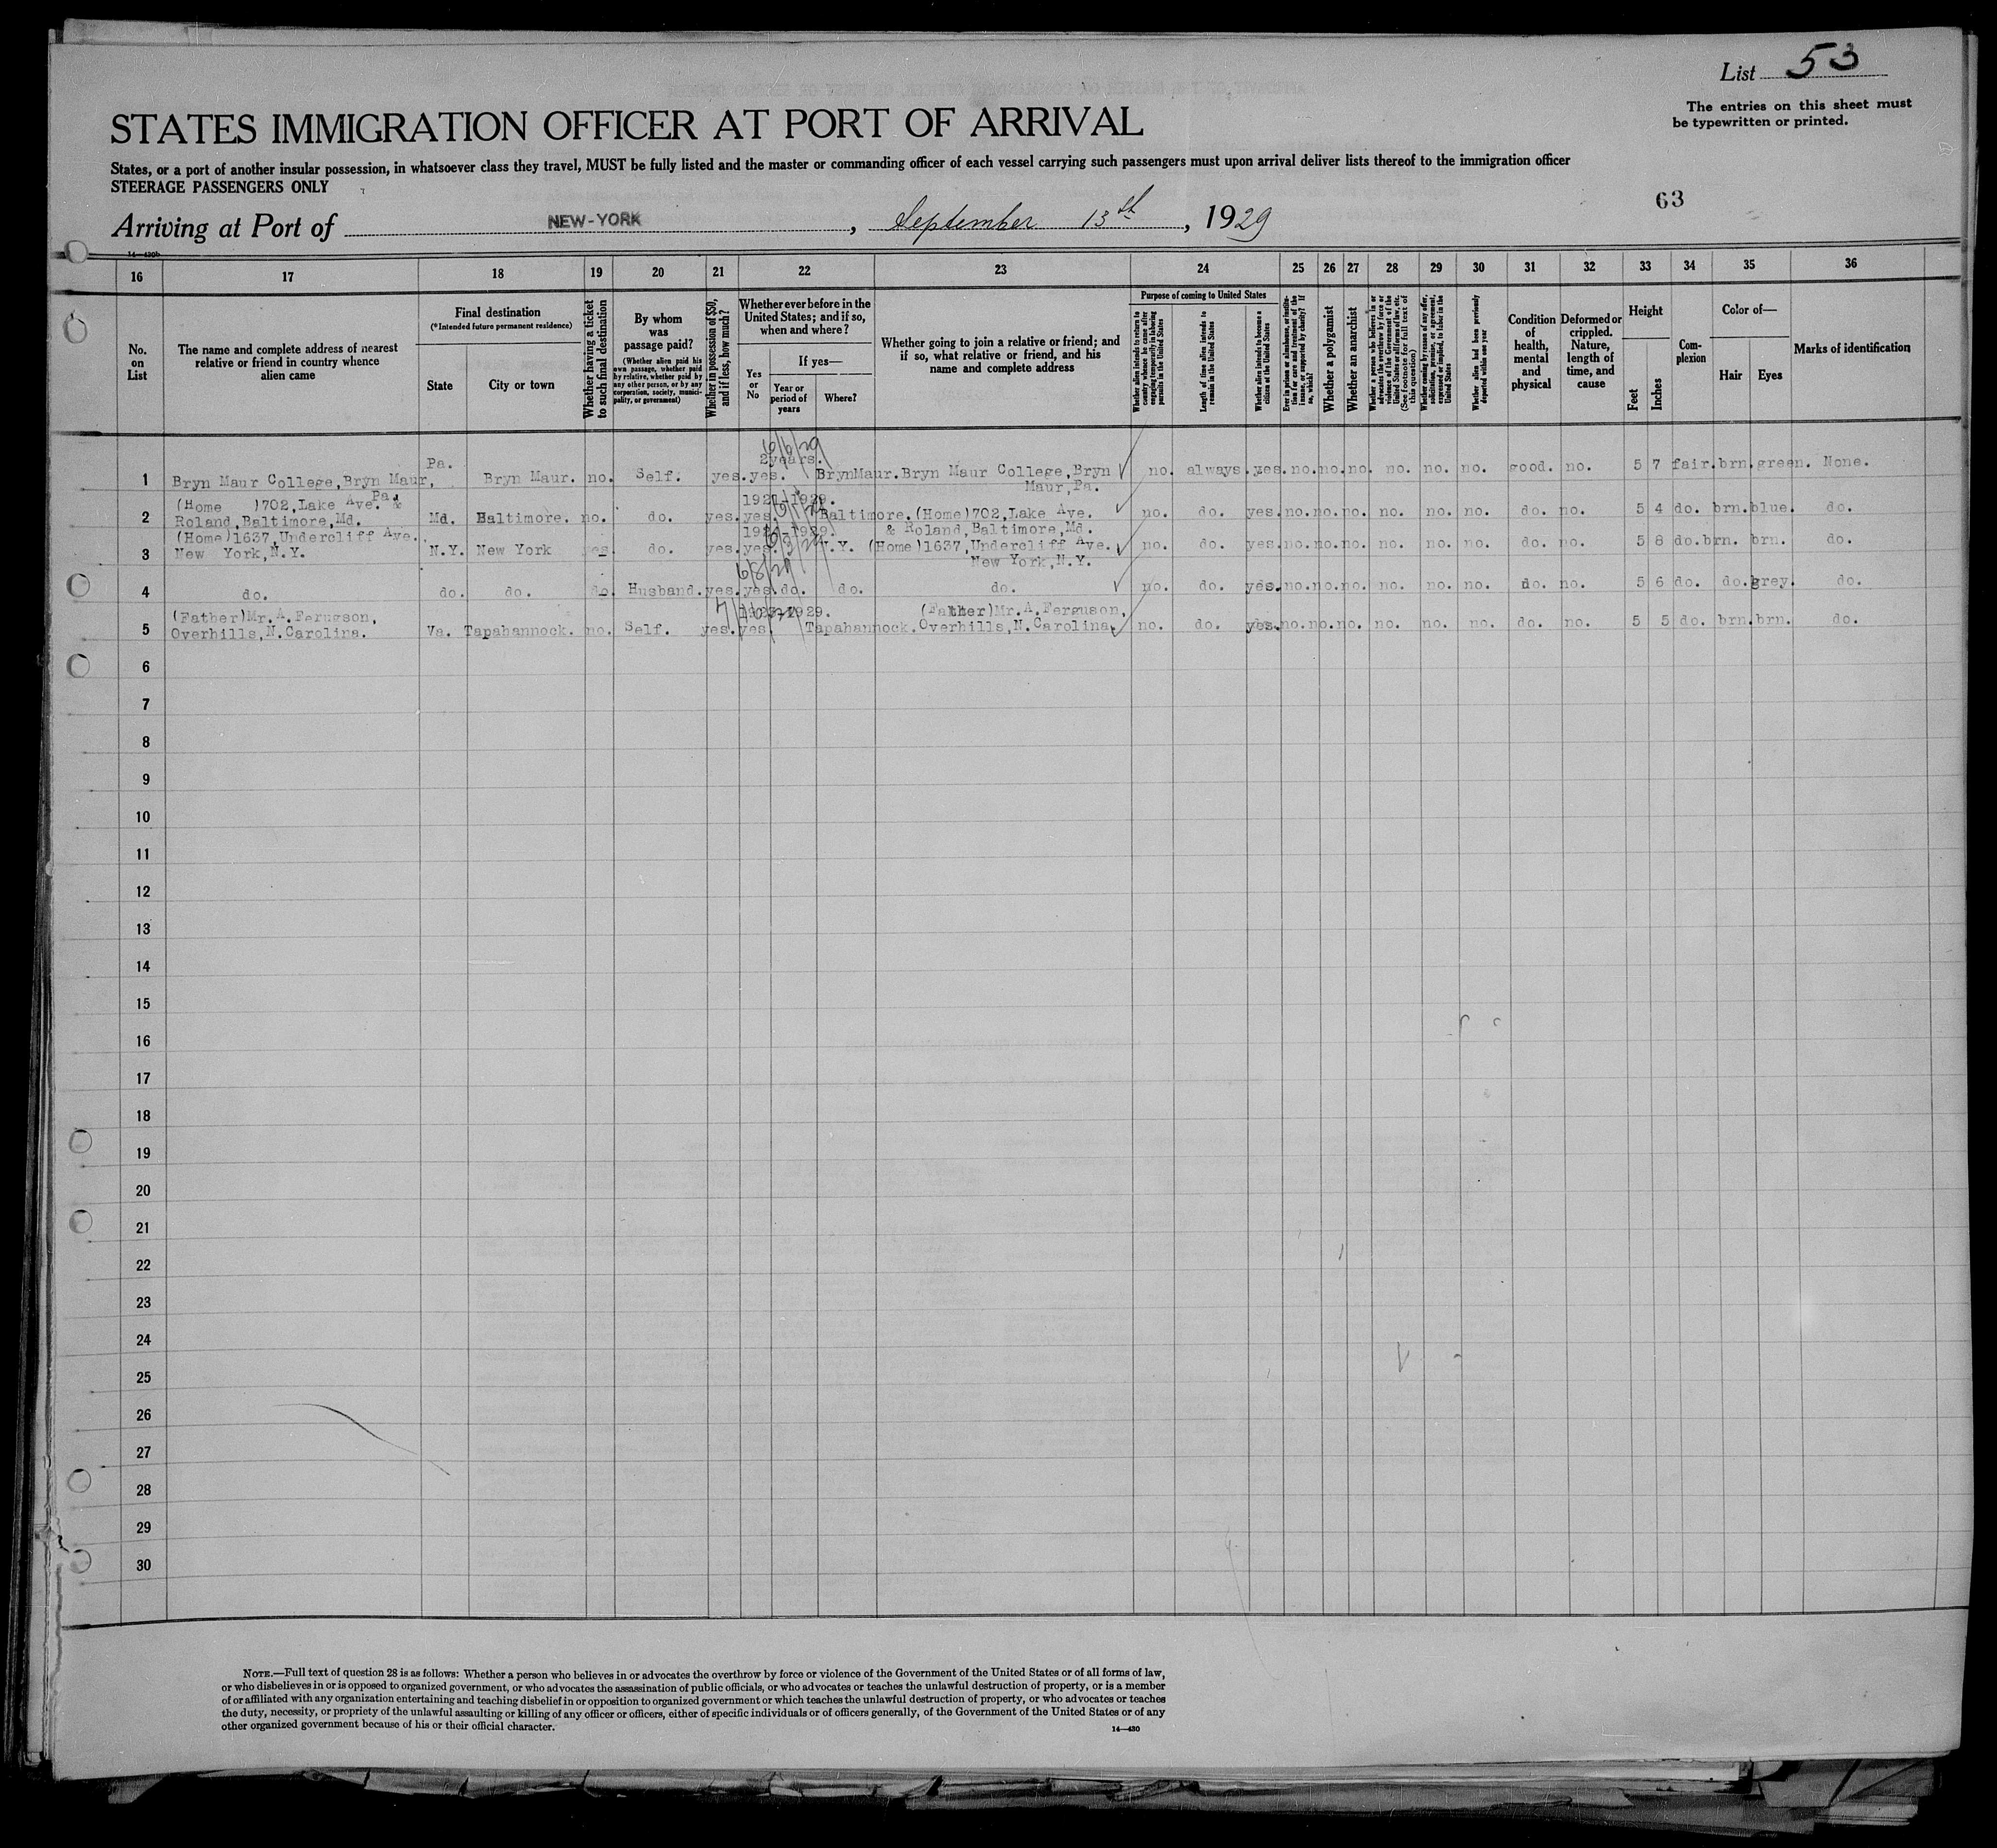 List 53
The entries on this sheet must
be typewritten or printed.
STATES IMMIGRATION OFFICER AT PORT OF ARRIVAL
States, or a port of another insular possession, in whatsoever class they travel, MUST be fully listed and the master or commanding officer of each vessel carrying such passengers must upon arrival deliver lists thereof to the immigration officer
STEERAGE PASSENGERS ONLY
63
Arriving at Port of NEW-YORK, September 13th, 1929
14—430b
16 17 18 19 20 21 22 23 24 25 26 27 28 29 30 31 32 33 34 35 36
No. on List
The name and complete address of nearest relative or friend in country whence alien came
Final destination
(*Intended future permanent residence)
State
City or town
Whether having a ticket to such final destination
By whom was passage paid?
(Whether alien paid his own passage, whether paid by relative, whether paid by any other person, or by any corporation, society, municipality, or government)
Whether in possession of $50, and if less, how much?
Whether ever before in the United States; and if so, when and where?
Yes or No
If yes—
Year or period of years
Where?
Whether going to join a relative or friend; and if so, what relative or friend, and his name and complete address
Purpose of coming to United States
Whether alien intends to return to country whence he came after engaging temporarily in laboring pursuits in the United States
Length of time alien intends to remain in the United States
Whether alien intends to become a citizen of the United States
Ever in prison or almshouse, or institution for care and treatment of the insane, or supported by charity? If so, which?
Whether a polygamist
Whether an anarchist
Whether a person who believes in or advocates the overthrow by force or violence of the Government of the United States or all forms of law, etc. (See footnote for full text of this question)
Whether coming by reason of any offer, solicitation, promise, or agreement, expressed or implied, to labor in the United States
Whether alien had been previously deported within one year
Condition of health, mental and physical
Deformed or crippled. Nature, length of time, and cause
Height
Feet
Inches
Complexion
Color of—
Hair
Eyes
Marks of identification
6/6/29
1 Bryn Maur College, Bryn Maur, Pa. Pa. Bryn Maur. no. Self. yes. yes. 2years. BrynMaur. Bryn Maur College, Bryn Maur, Pa. no. always. yes. no. no. no. no. no. no. good. no. 5 7 fair. brn. green. None.
2 (Home )702, Lake Ave. & Roland, Baltimore, Md. Md. Baltimore. no. do. yes. yes. Baltimore. (Home)702, Lake Ave. & Roland, Baltimore, Md. no. do. yes. no. no. no. no. no. no. do. no. 5 4 do. brn. blue. do.
3 (Home)1637, Undercliff Ave. New York, N.Y. N.Y. New York yes. do. yes. yes. N.Y. (Home)1637, Undercliff Ave. New York, N.Y. no. do. yes. no. no. no. no. no. no. do. no. 5 8 do. brn. brn. do.
6/8/29
4 do. do. do. do. Husband. yes. yes. do. do. do. no. do. yes. no. no. no. no. no. no. do. no. 5 6 do. do. grey. do.
5 (Father)Mr. A. Ferugson, Overhills, N. Carolina. Va. Tapahannock. no. Self. yes. yes. Tapahannock. (Father)Mr. A. Ferguson, Overhills, N. Carolina. no. do. yes. no. no. no. no. no. no. do. no. 5 5 do. brn. brn. do.
6
7
8
9
10
11
12
13
14
15
16
17
18
19
20
21
22
23
24
25
26
27
28
29
30
NOTE.—Full text of question 28 is as follows: Whether a person who believes in or advocates the overthrow by force or violence of the Government of the United States or of all forms of law,
or who disbelieves in or is opposed to organized government, or who advocates the assassination of public officials, or who advocates or teaches the unlawful destruction of property, or is a member
of or affiliated with any organization entertaining and teaching disbelief in or opposition to organized government or which teaches the unlawful destruction of property, or who advocates or teaches
the duty, necessity, or propriety of the unlawful assaulting or killing of any officer or officers, either of specific individuals or of officers generally, of the Government of the United States or of any
other organized government because of his or their official character.
14—430